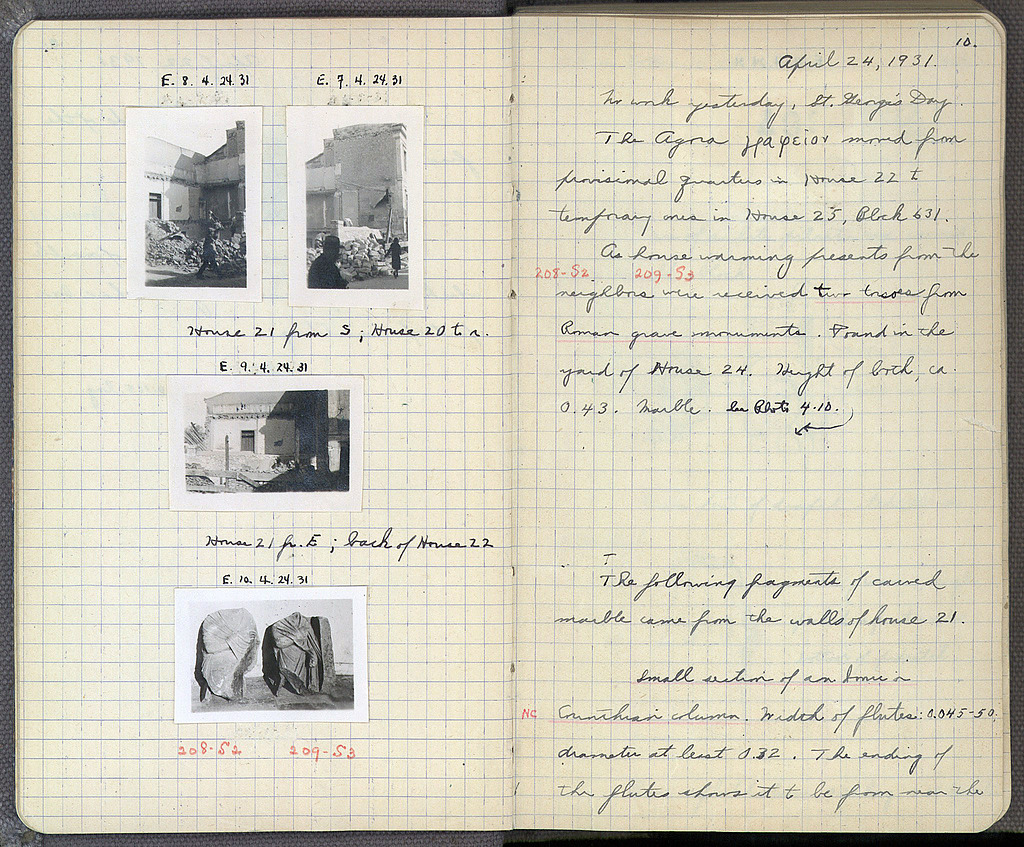 E. 8. 4. 24. 31
E. 7. 4. 24. 31
House 21 from S; House 20 to r.
E. 9. 4. 24. 31
House 21 fr. E; back of House 22
E. 10. 4. 24. 31
208-S2 209-S3
10.
April 24, 1931.
No work yesterday, St. George's Day.
The Agora γραφεῖον moved from
provisional quarters in House 22 to
temporary ones in House 25, Block 631.
As house warming presents from the
208-S2 209-S3
neighbors were received two torsoes from
Roman grave monuments. Found in the
yard of House 24. Height of both, ca.
0.43. Marble. See Photo 4.10.
The following fragments of carved
marble came from the walls of house 21.
Small section of an Ionic or
NC Corinthian column. Width of flutes: 0.045-50.
diameter at least 0.32. The ending of
the flutes shows it to be from near the